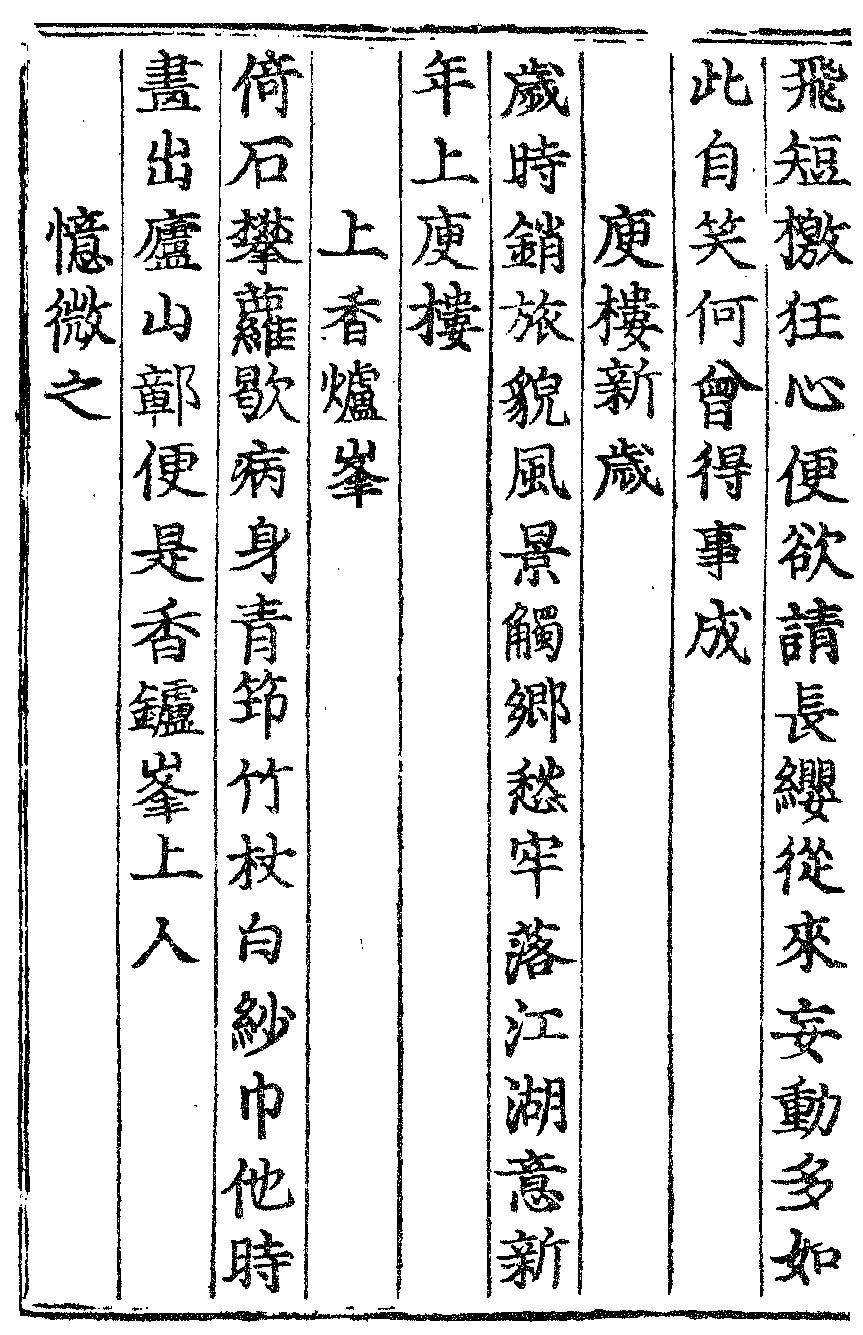 飛短檄狂心便欲請長纓從來妄動多如
此自笑何曾得事成
庾樓新歲
歲時銷旅貌風景觸鄉愁牢落江湖意新
年上庾樓
上香爐峯
倚石攀蘿歇病身青筇竹杖白紗巾他時
畫出廬山鄣便是香鑪峯上人
憶微之